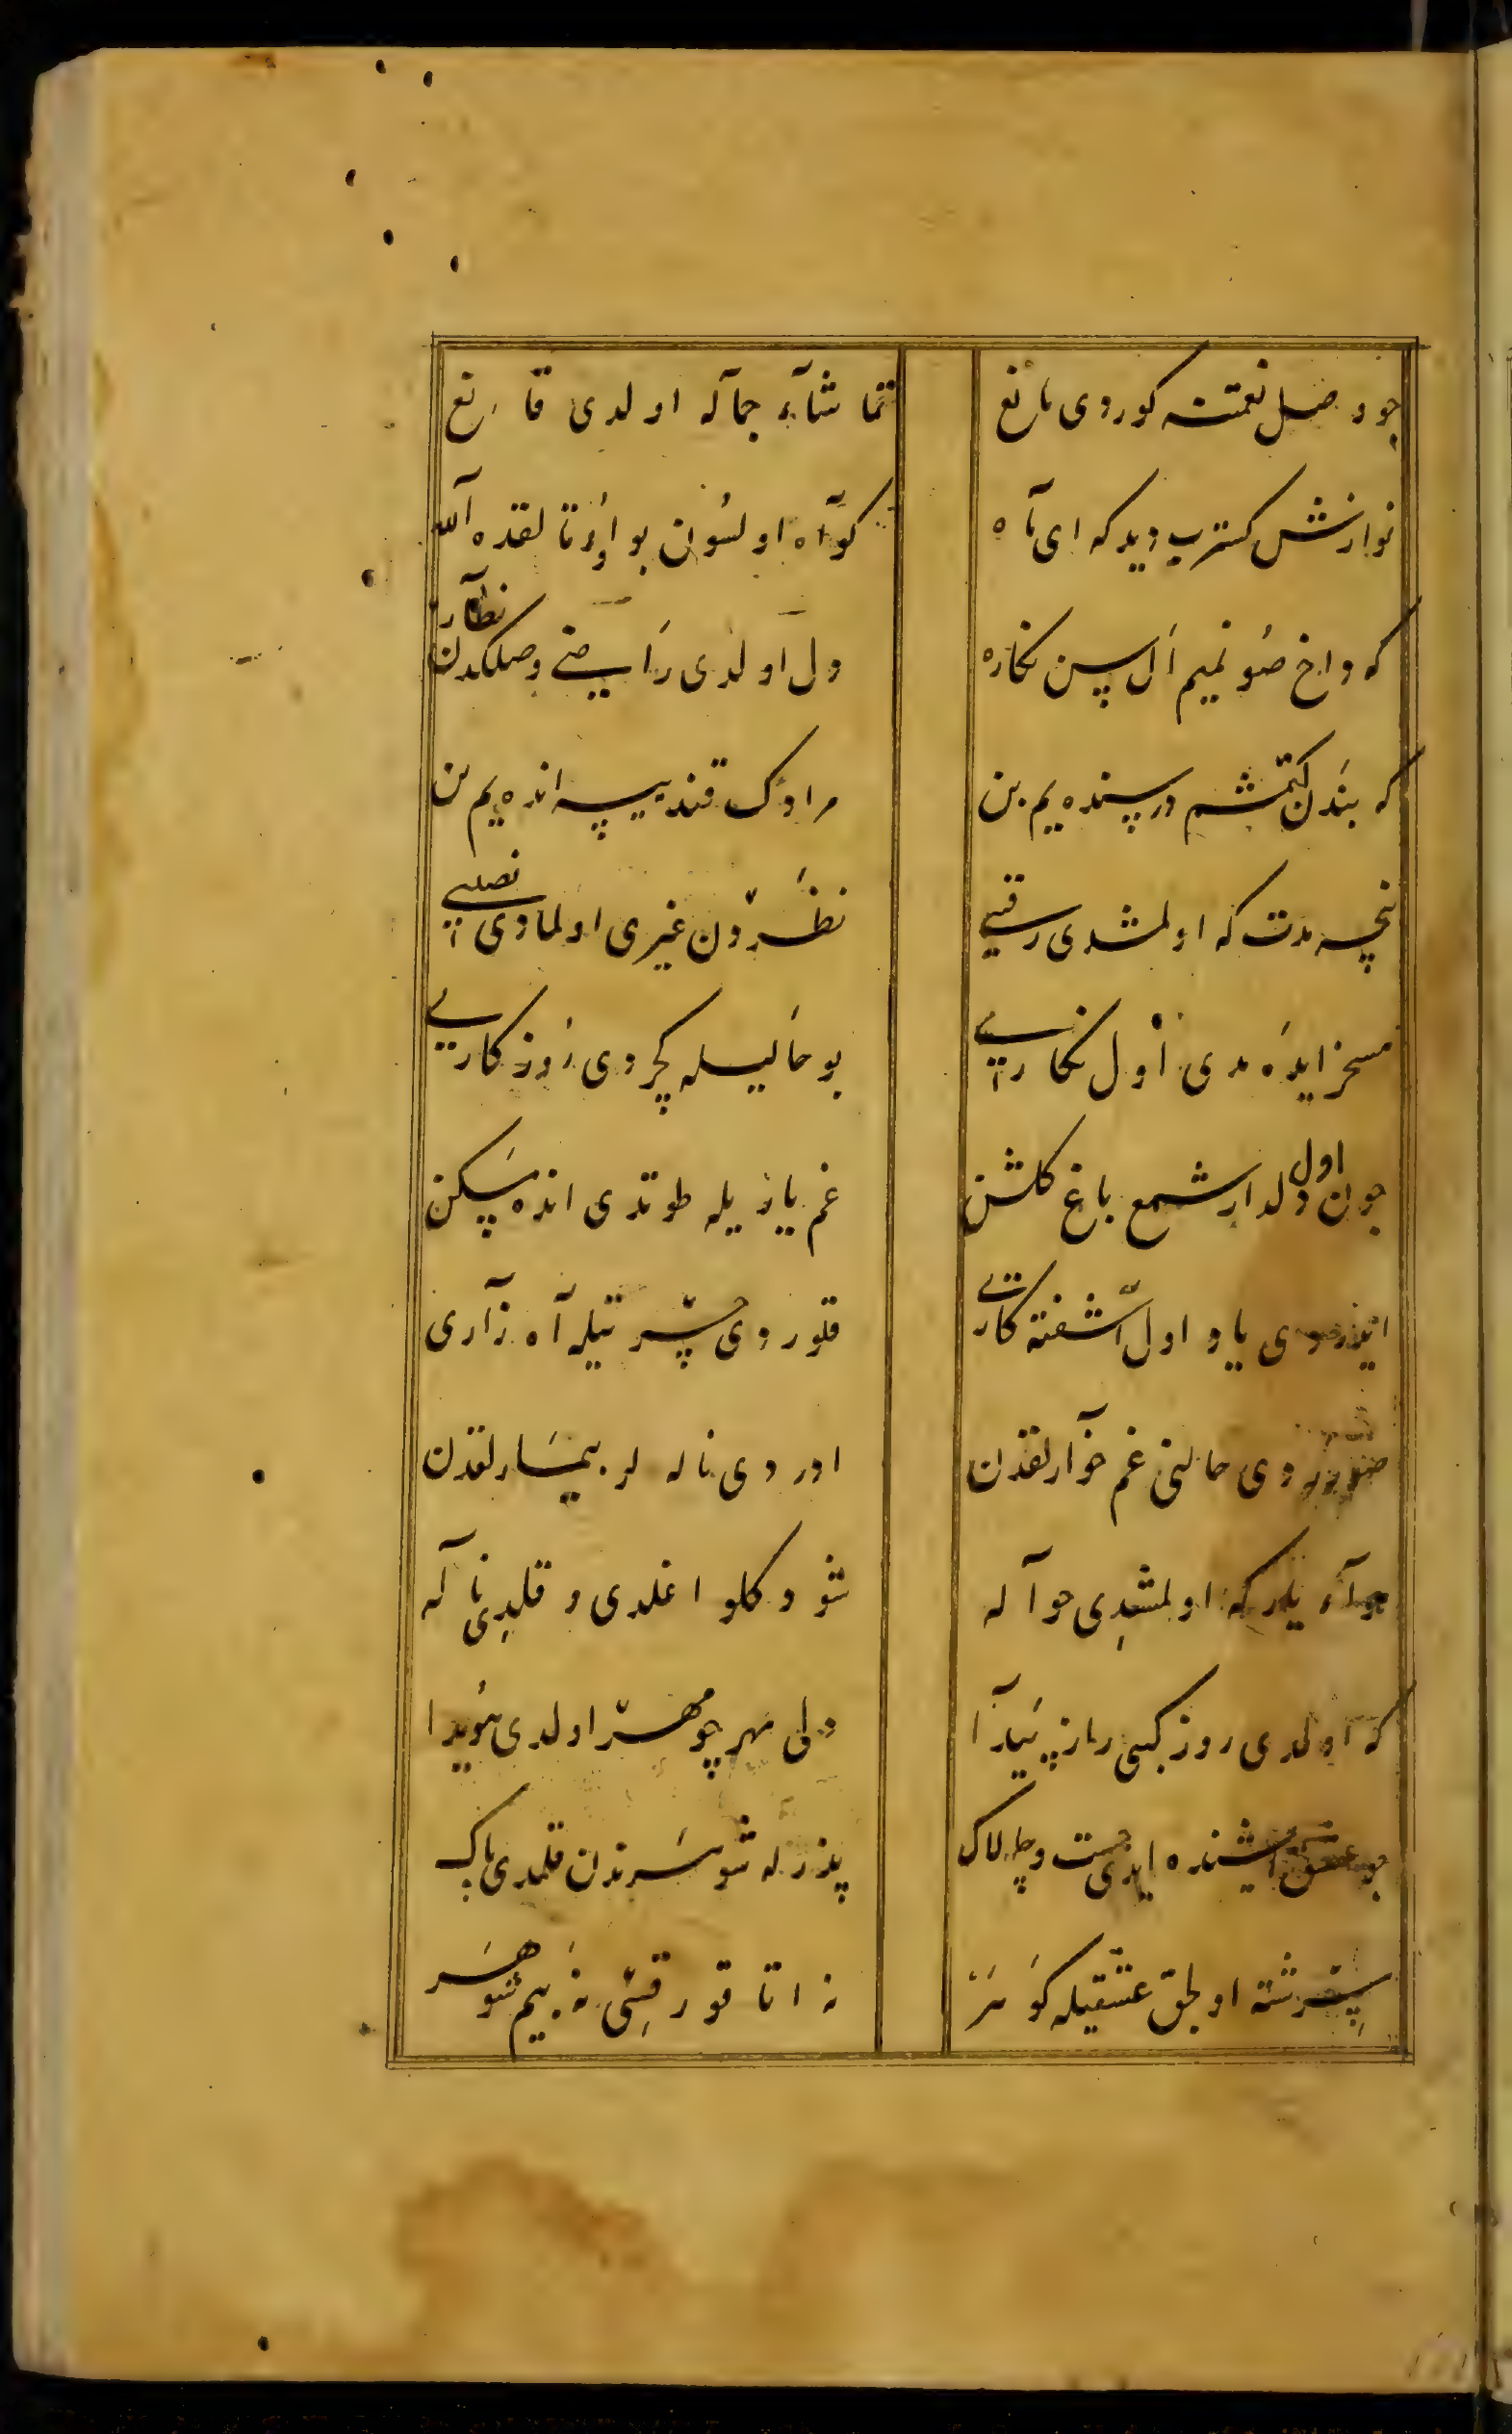 چو وصل نعمتنه کوردی مانع تماشآء جمآله اولدی قانع
نوازش کسترب دیدکه ای مآه کوآه اولسُون بو اوُرتالقده آلله
که داخ صُونمیم اَل سن نکاره دل اولدی رَاضی وصلکدن نظآره
که بنَدن کتمشم در سنده یم بن مرادک قنده یسه انده یم بن
نیچه مدت که اولمشدی رقیبی نظَردن غیری اولمادی نصیبی
مسخر ایدَه مدی اول نکاری بو حَالیله کچردی رُوزکاری
چون اول دلدار شمع باغ کلشن غم یاریله طوتدی انده مَسکن
ایدردی یاد اول آشفته کاری قلوردی حسرتیله آه زآری
دی حالنی غم خوآرلقدن اوردی ناله لر بیمَارلقدن
که اولمشدِی حوآله شو دکلو اغلدی و قلدِی نآله
که اولدی روز کبی راز پَیدآ دلی مهر چو مهتر اولدی هُویدا
چو عشق ایشنده ایدی چست و چالاک پدرله شو سَرندن قلمدی باک
سرشته اولجق عشقیله کوَهَر نه اتا قورقسِی نَه بیم شوهَر